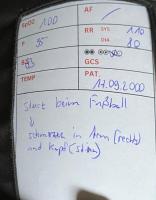 SpO2 100 AF /
P 95 RR SYS 110
DIA 80
BZ GCS
TEMP PAT. 17.09.2000
Sturz beim Fußball
↳ schmerzen in Arm (rechts)
und Kopf (Stirn)